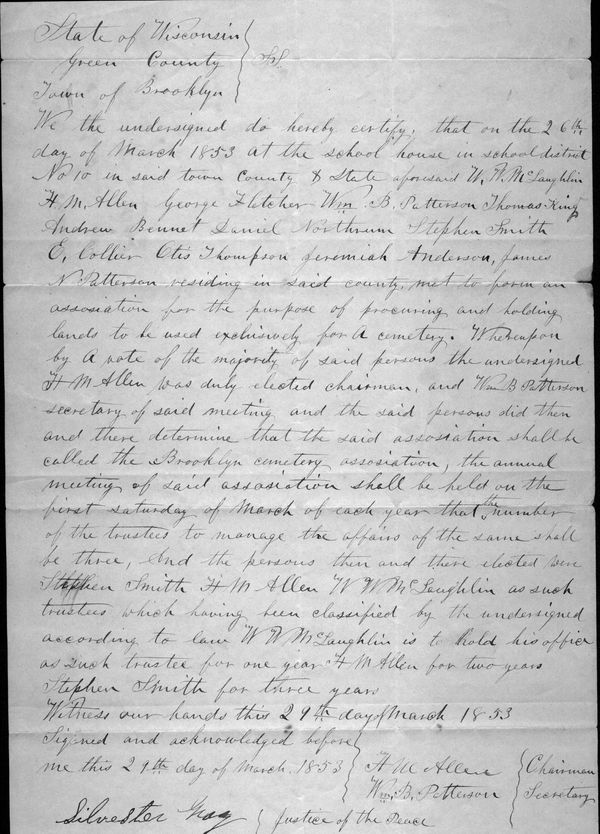 State of Wisconsin
Green County } SS.
Town of Brooklyn
We the undersigned do hereby certify, that on the 26th
day of March 1853 at the school house in school district
No 10 in said town County & State aforesaid W. W. McLaughlin
H. M. Allen George Fletcher Wm. B. Patterson Thomas King
Andrew Bennet Daniel Northrum Stephen Smith
E. Collier Otis Thompson Jeremiah Anderson, James
N Patterson residing in said county, met to form an
assosiation for the purpose of procuring and holding
lands to be used exclusively for a cemetery. Whereupon
by a vote of the majority of said persons the undersigned
H M Allen was duly elected chairman, and Wm B Patterson
secretary of said meeting and the said persons did then
and there determine that the said assosiation shall be
called the Brooklyn cemetery assosiation, the annual
meeting of said assasiation shall be held on the
first saturday of March of each year that the number
of the trustees to manage the affairs of the same shall
be three, And the persons then and there elected were
Stephen Smith H M Allen W W McLaughlin as such
trustees which having been classified by the undersigned
according to law W W McLaughlin is to hold his office
as such trustee for one year H M Allen for two years
Stephen Smith for three years
Witness our hands this 29th day of March 1853
Signed and acknowledged before
me this 29th day of March 1853
H M Allen Chairman
Wm. B. Patterson Secretary
Silvester Gray Justice of the Peace